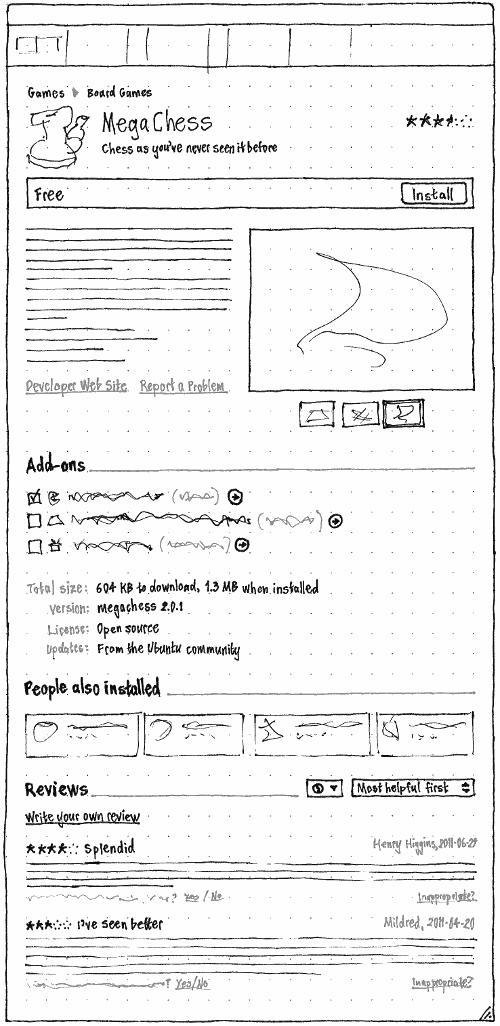 Games ▸ Board Games
MegaChess
Chess as you've never seen it before
Free
Install
Developer Web Site Report a Problem
Add-ons
Total size: 604 KB to download, 1.3 MB when installed
Version: megachess 2.0.1
License: Open source
Updates: From the Ubuntu community
People also installed
Reviews
Most helpful first
Write your own review
Splendid
Henry Higgins, 2011-06-29
Yes / No
Inappropriate?
I've seen better
Mildred, 2011-04-20
Yes/No
Inappropriate?